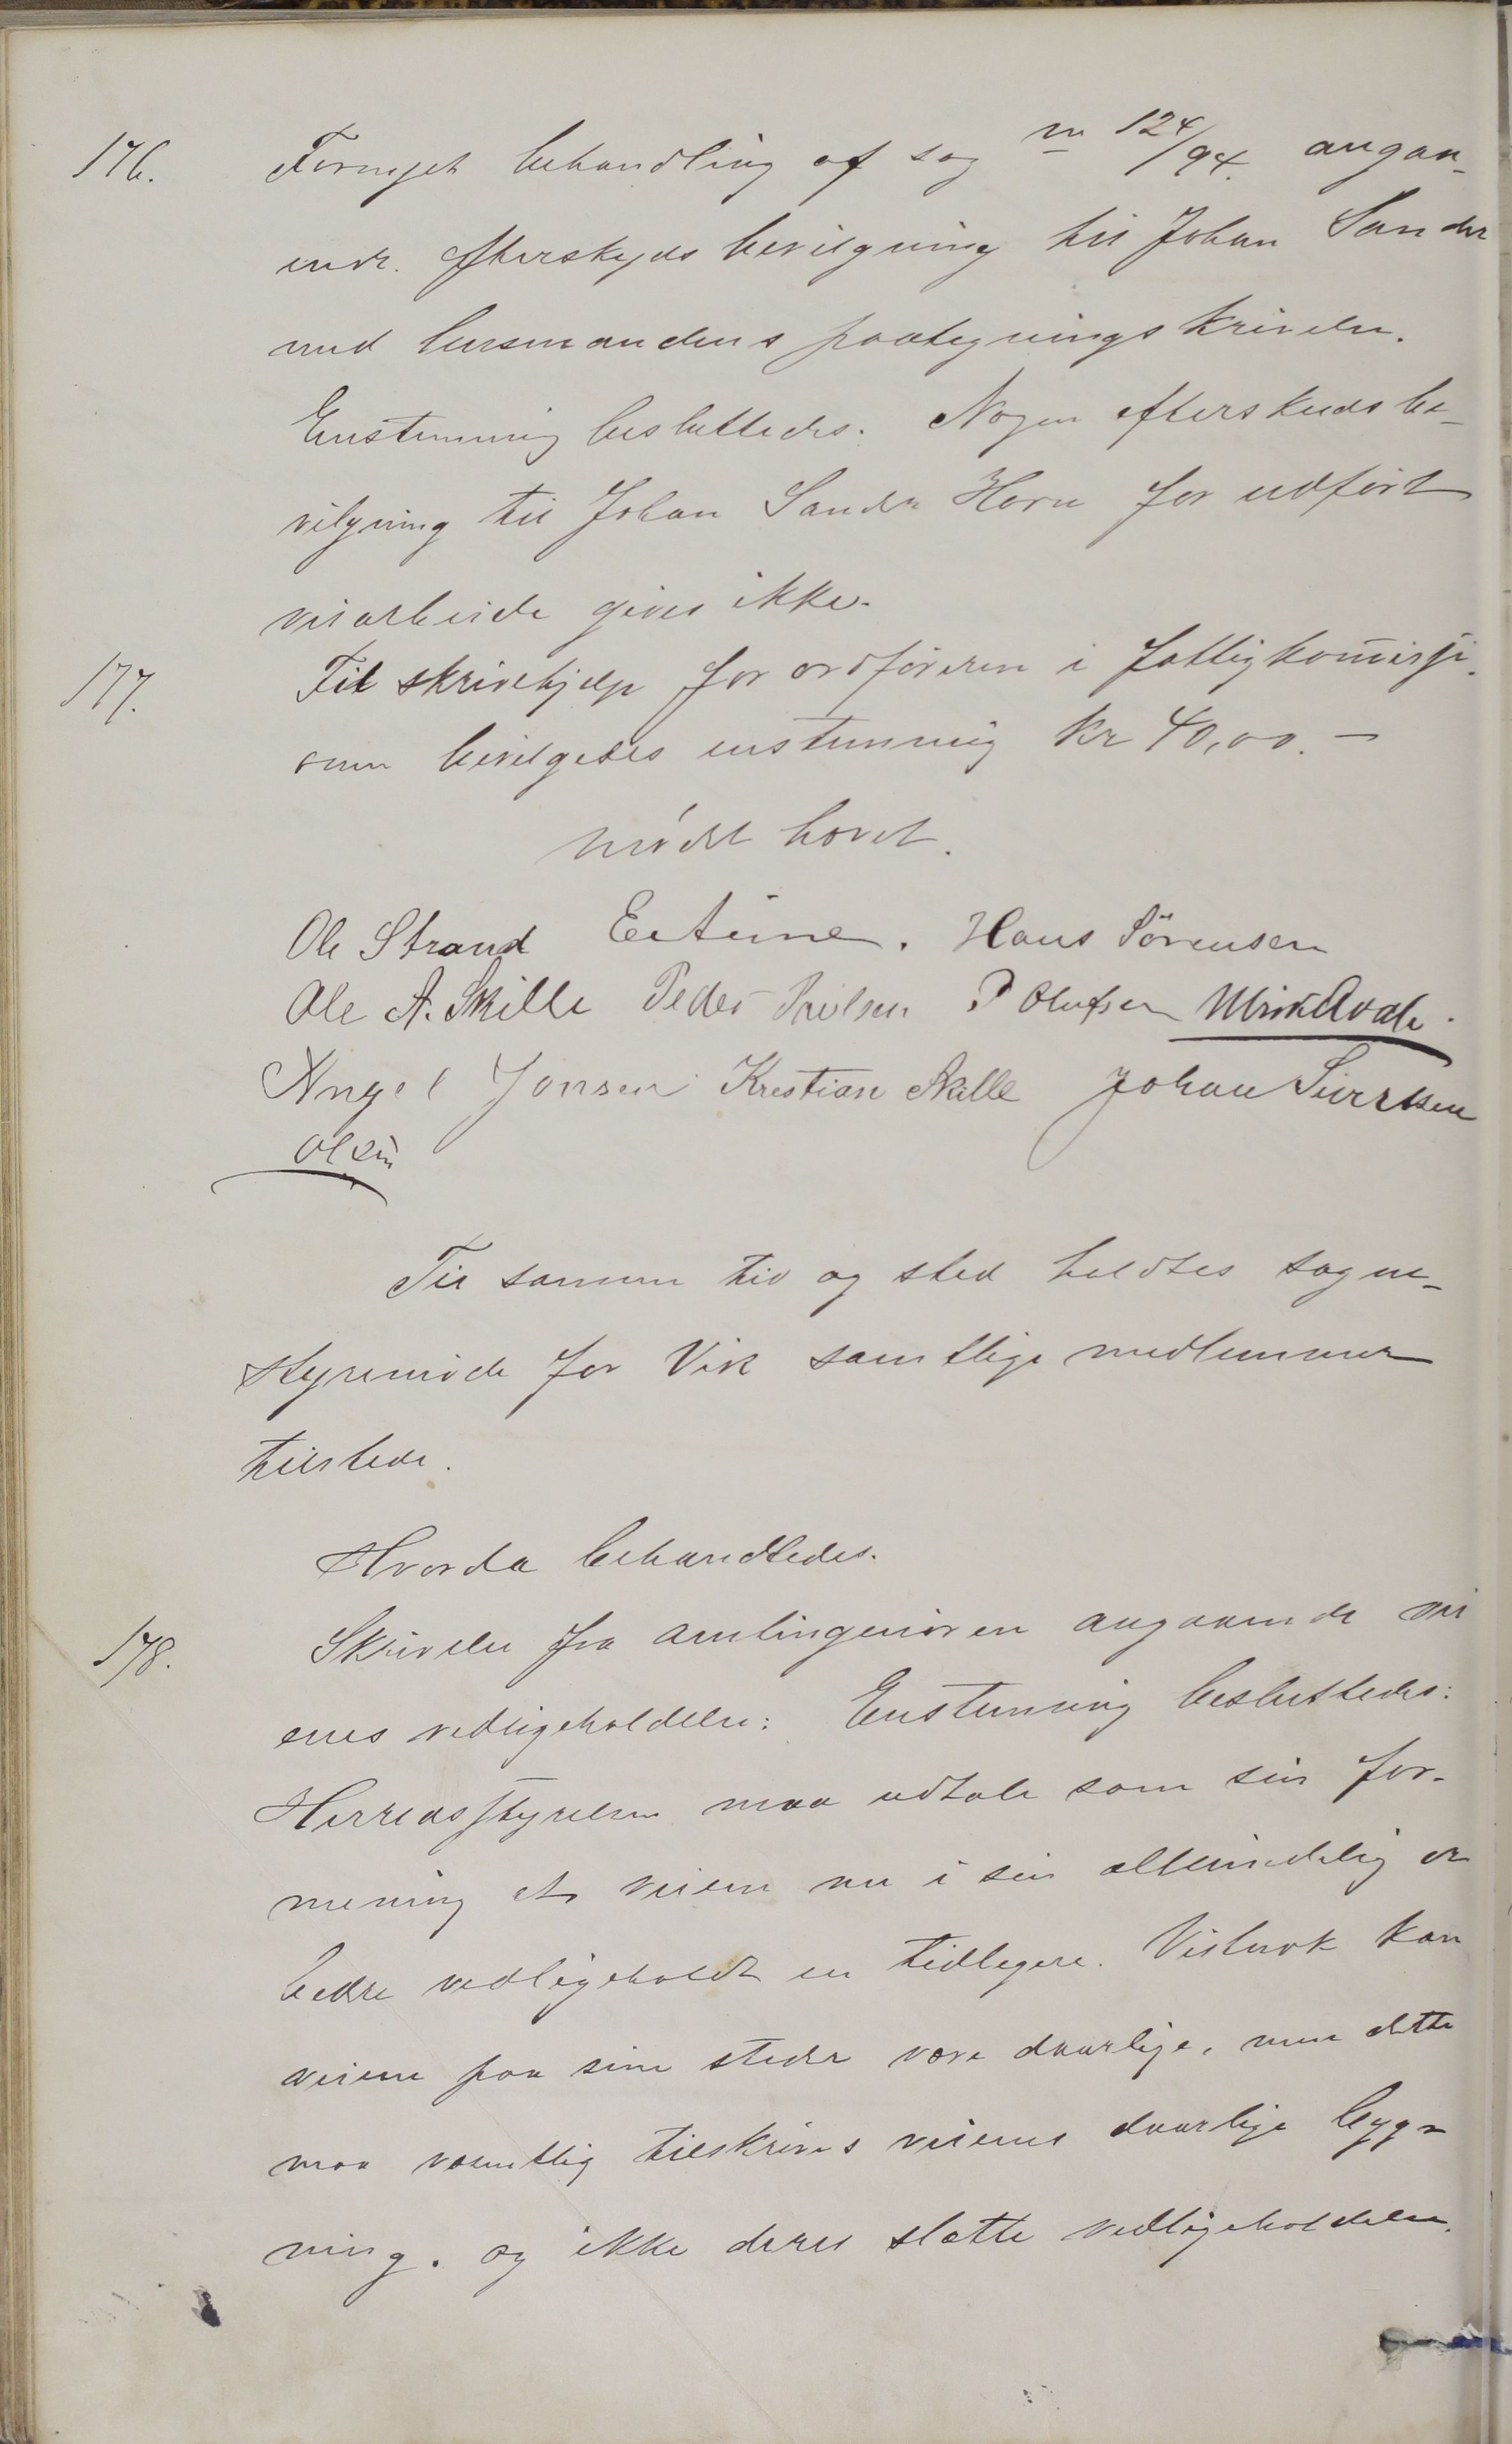 176. Fornyet behandling af sag no 124/94. angaa-
ende. Efterskuds bevilgning til Johan Sander
med lensmandens paategningsskrivelse.
Enstemmig besluttedes. Nogen efterskudsbe-
vilgning til Johan Sander Horn for udfört
veiarbeide gives ikke.
177. Til skrivehjelp for ordföreren i fattigkom̄isji-
onen bevilgedes enstemmig kr 40,00.-
Mödet hævet.
Ole Strand Hans Sörensen
Ole A. Skille Peder P Olufsen
Angel Jonsen Kristian Skille Johan
Olsen
Til samme tid og sted holdtes sogne-
styremöde for Vik samtlige medlemmer
tilstede.
Hvorda behandledes.
178. Skrivelse fra amtingeniören angaaende vei
enes vedligeholdelse: Enstemmig besluttedes:
Herredsstyrelsen maa udtale som sin for-
mening at veiene nu i sin almindelig er
bedre vedligeholdt en tidligere. Vistnok kan
veiene paa sine steder være daarlige, men dette
maa væsentlig tilskrives veienes daarlige byg-
ning. og ikke deres slætte vedligeholdelse.